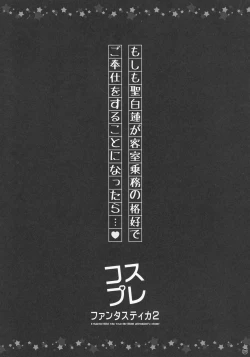 もしも聖白蓮が客室乗務の格好で
ご奉仕をすることになったら…♥
コス
プレ
ファンタスティカ2